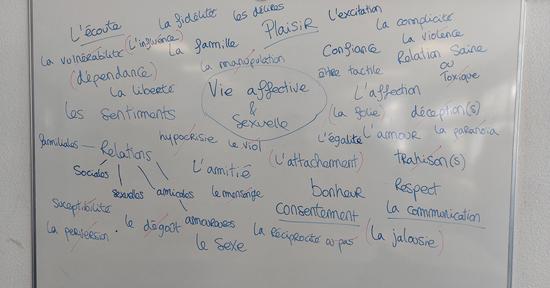 L'écoute
la fidélité
les délires
Plaisir
L'excitation
la complicité
la vulnérabilité
(L'influence)
la famille
la manipulation
Confiance
la violence
(dépendance)
la liberté
être tactile
Relation Saine
ou
Toxique
les sentiments
Vie affective
&
sexuelle
L'affection
(la folie)
déception(s)
hypocrisie
le viol
L'égalité
L'amour
la paranoïa
familiales
Relations
Sociales
sexuelles
amicales
amoureuses
L'amitié
(L'attachement)
trahison(s)
le mensonge
bonheur
Respect
susceptibilité
consentement
la communication
la perversion
le dégoût
le sexe
la réciprocité ou pas
(la jalousie)